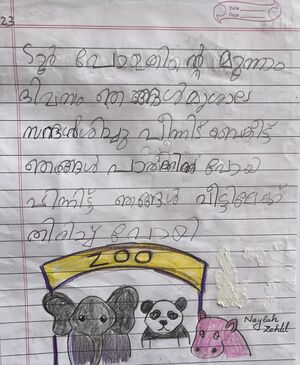 23
Date
Page
ടൂർ പോയതിന്റെ മൂന്നാം
ദിവസം ഞങ്ങൾ
സന്ദർശിച്ചു പീന്നിട് വൈകീട്ട്
ഞങ്ങൾ പാർക്കിൽ പോയി
പിന്നിട്ട് ഞങ്ങൾ വീട്ടിലേക്ക്
തിരിച്ച് പോയി
ZOO
Naylah